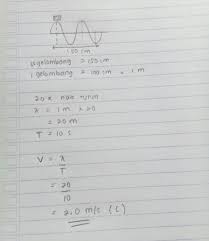 150 cm
gelombang = 150 cm
1 gelombang = 100 cm = 1 m
20 x naik turun
λ = 1 m x 20
= 20 m
T = 10 s
V = λ
T
= 20
10
= 2,0 m/s (C)